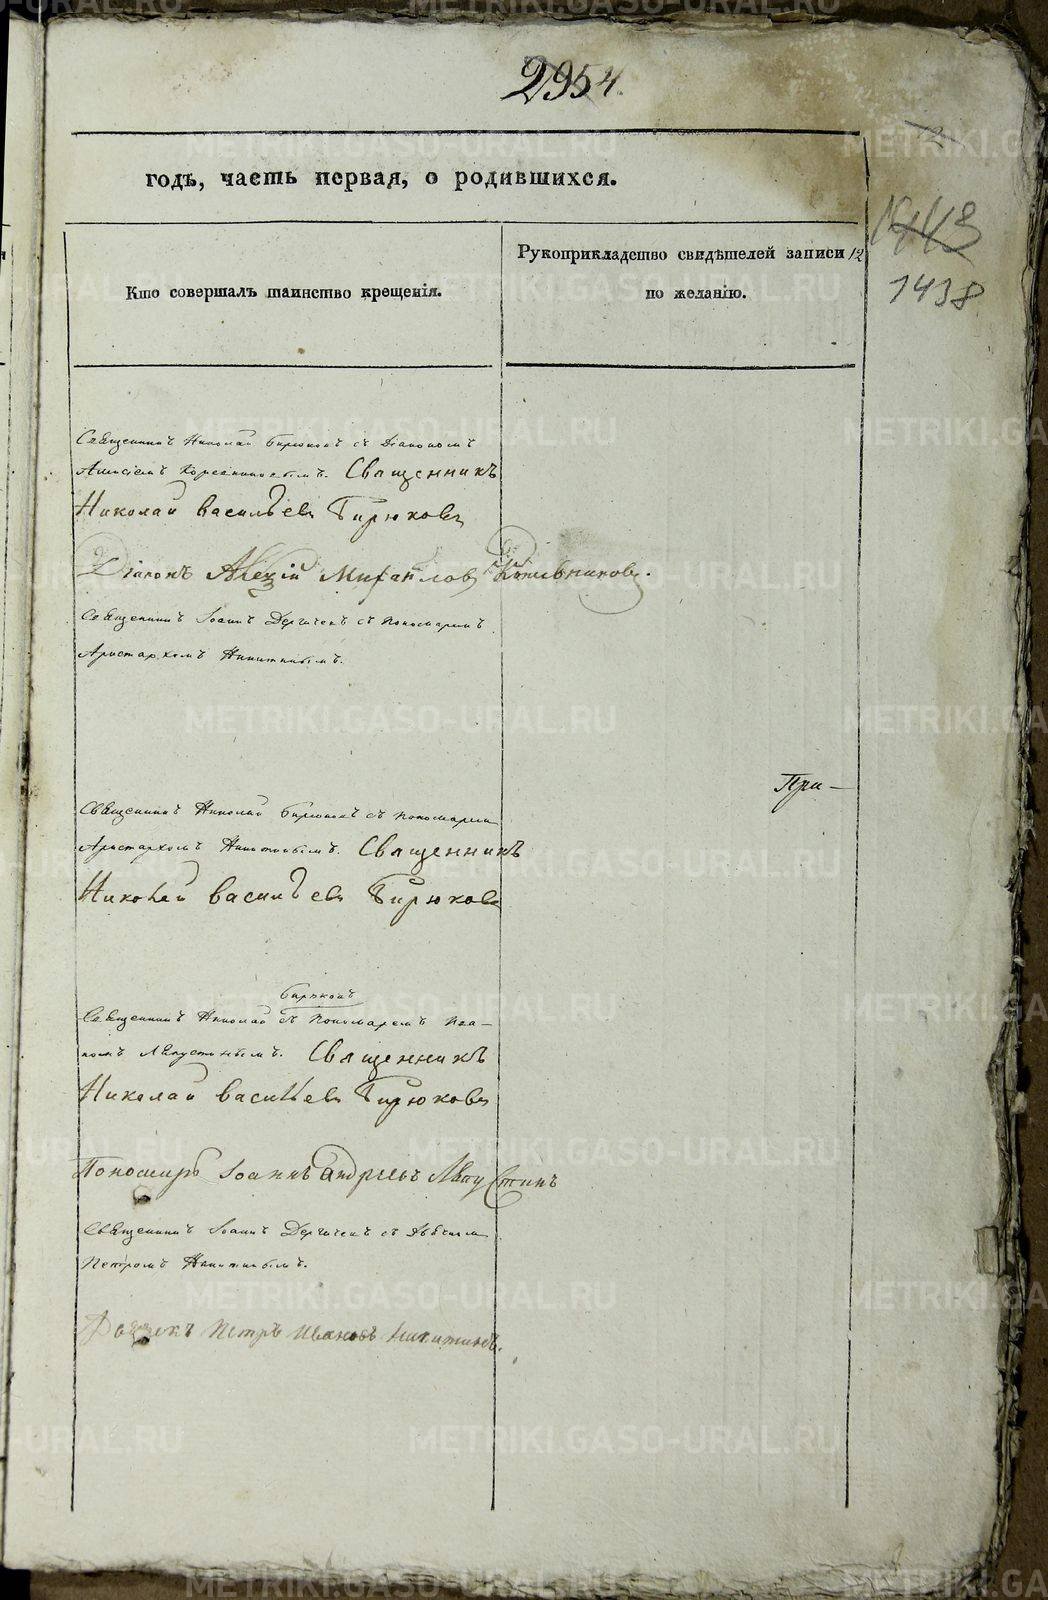 2954.
годъ, часть первая, о родившихся.
1443
1438
Кто совершалъ таинство крещенія.
Рукоприкладство свидѣтелей записи 12
по желанію.
Священникъ Николай Бирюковъ съ Діакономъ
Алексіемъ Священникъ
Николай Васильевъ Бирюковъ
Діаконъ Алеѯій Михайловъ
Священникъ Іоаннъ съ Пономаремъ
Аристархомъ Никитинымъ.
При-
Священникъ Николай Бирюковъ съ Пономаремъ
Аристархомъ Никитинымъ. Священникъ
Николай Васильевъ Бирюковъ
Бирюковъ
Священникъ Николай съ Пономаремъ Иоа-
номъ Священникъ
Николай Васильевъ Бирюковъ
Пономарь Іоаннъ Андреевъ
Священникъ Іоаннъ съ Дьячкомъ
Петромъ Никитинымъ.
Дьячекъ Петръ Ивановъ Никитинъ.
METRIKI.GASO-URAL.RU